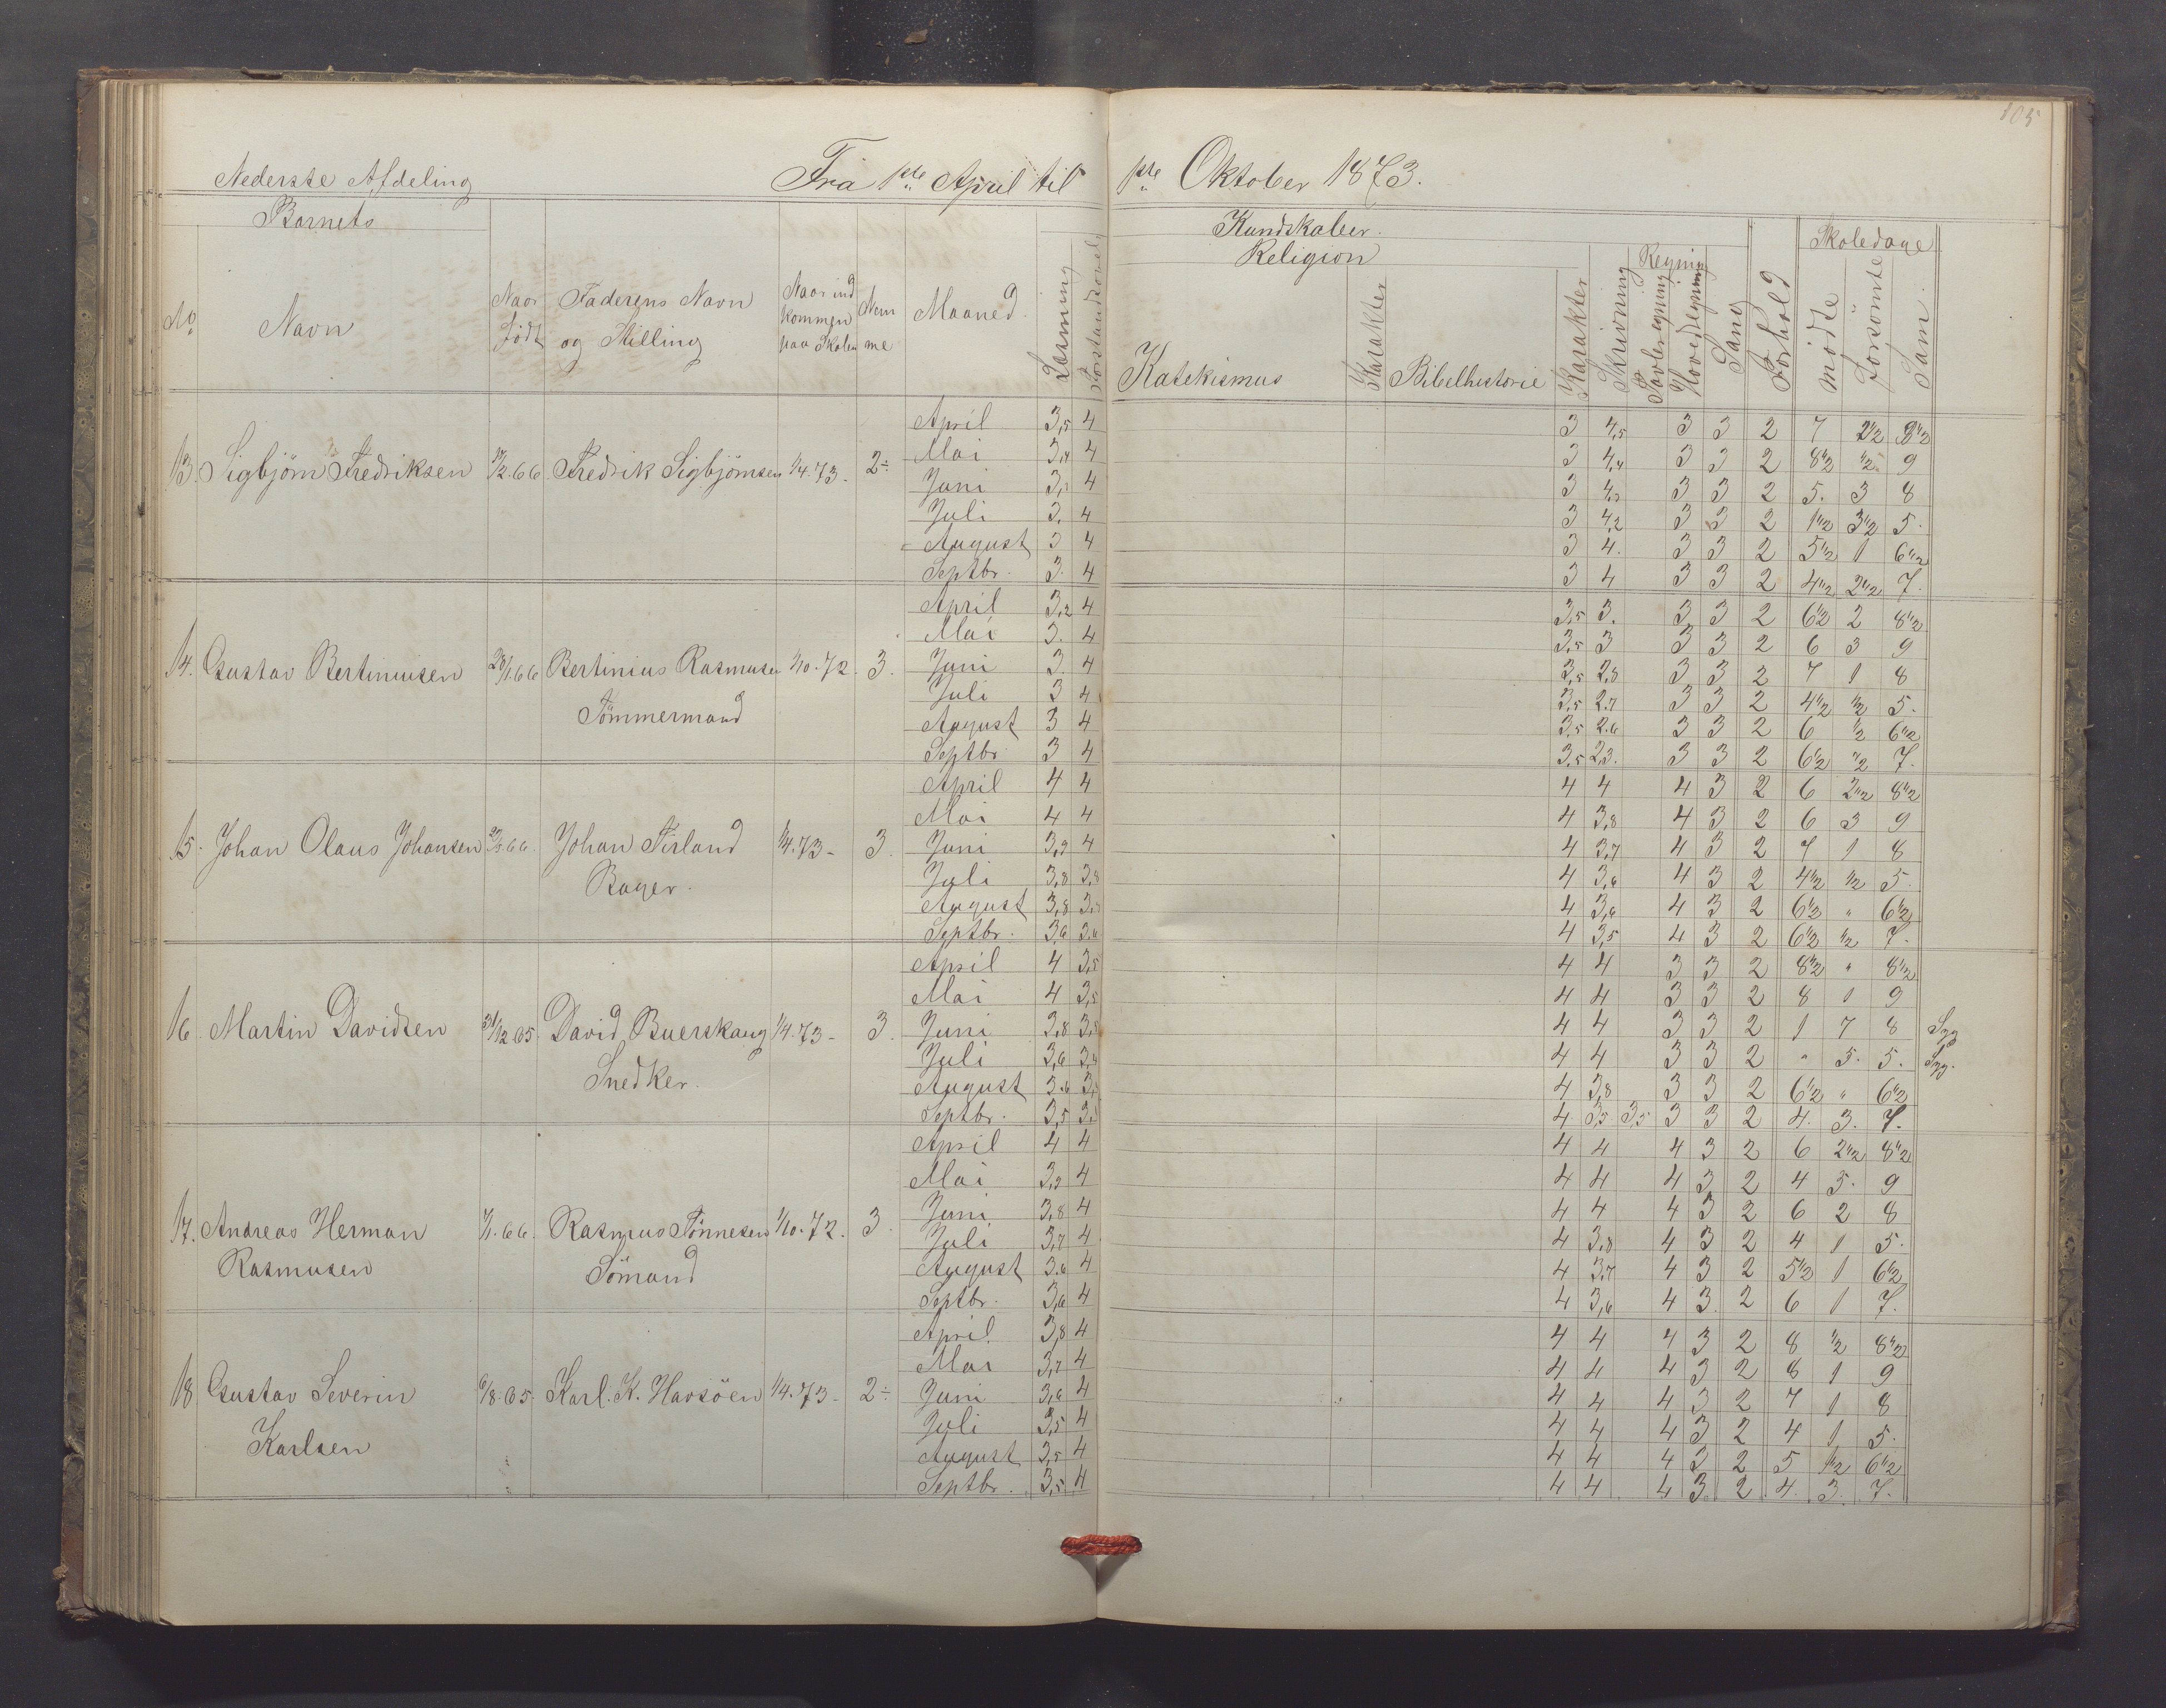 105
Nederste Afdeling Fra 1ste April til 1ste Oktober 1873.
Barnets Kundskaber. Skoledage
Religion Regning
No Navn Naar født Faderens Navn og Stilling Naar ind kommen paa Skolen Nem me Maaned Læsning Forstandsøvels Katekismus Karakter Bibelhistorie Karakter Skrivning Tavleregning Hovedregning Sang Forhold mødte Forsømte Sum.
April 3,5 4 3 4,5 3 3 2 7
Mai 3,4 4 3 4,4 3 3 2 8 1/2 1/2 9
13. Sigbjørn Fredriksen Fredrik Sigbjørnsen 1/4.73. 2÷
Juni 4 3 3 3 2 5. 3 8
Juli 3. 4 3 4,2 3 3 2 1 1/2 3 1/2 5.
August 3 4 3 4. 3 3 2 5 1/2 1 6 1/2
Septbr. 3. 4 3 4 3 3 2 4 1/2 2 1/2 7.
April 3,2 4 3,5 3. 3 3 2 6 1/2 2 8 1/2
Mai 3. 4 3,5 3 3 3 2 6 3 9
14. Gustav Bertiniusen 28/1.66 Bertinius Rasmusen 1/10.72. 3. Juni 3. 4 3,5 2,8 3 3 2 7 1 8
Juli 3 4 3,5 2.7 3 3 2 4 1/2 1/2 5.
Tømmermand August 3 4 3,5 2.6 3 3 2 6 1/2 6 1/2
Septbr 3 4 3,5 2,3. 3 3 2 6 1/2 1/2 7.
April 4 4 4 4 4 3 2 6 2 1/2 8 1/2
Mai 4 4 4 3,8 4 3 2 6 3 9
15. Johan Olaus Johansen Johan Tirland 1/4.73- 3. Juni 3,9 4 4 3,7 4 3 2 7 1 8
Bager. Juli 3,8 3,8 4 3,6 4 3 2 4 1/2 1/2 5.
August 3,8 4 3,6 4 3 2 6 1/2 " 6 1/2
Septbr. 3,6 3.6 4 3,5 4 3 2 6 1/2 1/2 7.
April 4 3,5 4 4 3 3 2 8 1/2 " 8 1/2
Mai 4 3,5 4 4 3 3 2 8 1 9
16. Martin Davidsen 31/12.65. David Buerskaug 1/4.73- 3. Juni 3,8 4 4 3 3 2 1 7 8 Syg
Snedker. Juli 3,6 4 4 3 3 2 " 5. 5. Syg.
August 3.6 4 3,8 3 3 2 6 1/2 " 6 1/2
Septbr. 3,5 4 3,5 3,5 3 3 2 4. 3. 7.
April 4 4 4 4 4 3 2 6 2 1/2 8 1/2
Mai 3,9 4 4 4 4 3 2 4 5. 9
17. Andreas Herman 7/1.66. Rasmus Tønnesen 1/10.72. 3 Juni 3,8 4 4 4 4 3 2 6 2 8
Juli 3,7 4 4 3,8 4 3 2 4 1 5.
Rasmusen Sømand August 3.6 4 4 3,7 4 3 2 5 1/2 1 6 1/2
Septbr. 3,6 4 4 3,6 4 3. 2 6 1 7.
April. 3,8 4 4 4 4 3 2 8 1/2 8 1/2
Mai 3,7 4 4 4 4 3 2 8 1 9
18 Gustav Severin 6/8.65. Karl. K. Havsøen 1/4.73- 2÷ Juni 3,6 4 4 4 4 3 2 7 1 8
Juli 3,5 4 4 4 4 3 2 4 1 5.
Karlsen August 3,5 4 4 4 4 3 2 5 1 1/2 6 1/2
Septbr. 3,5 4 4 4 4 3. 2 4. 3. 7.